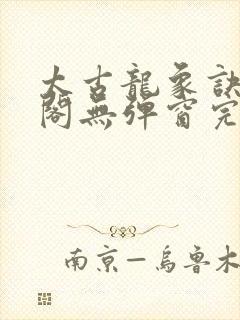 太古龍象訣
閣無彈窗完
南京－烏魯木